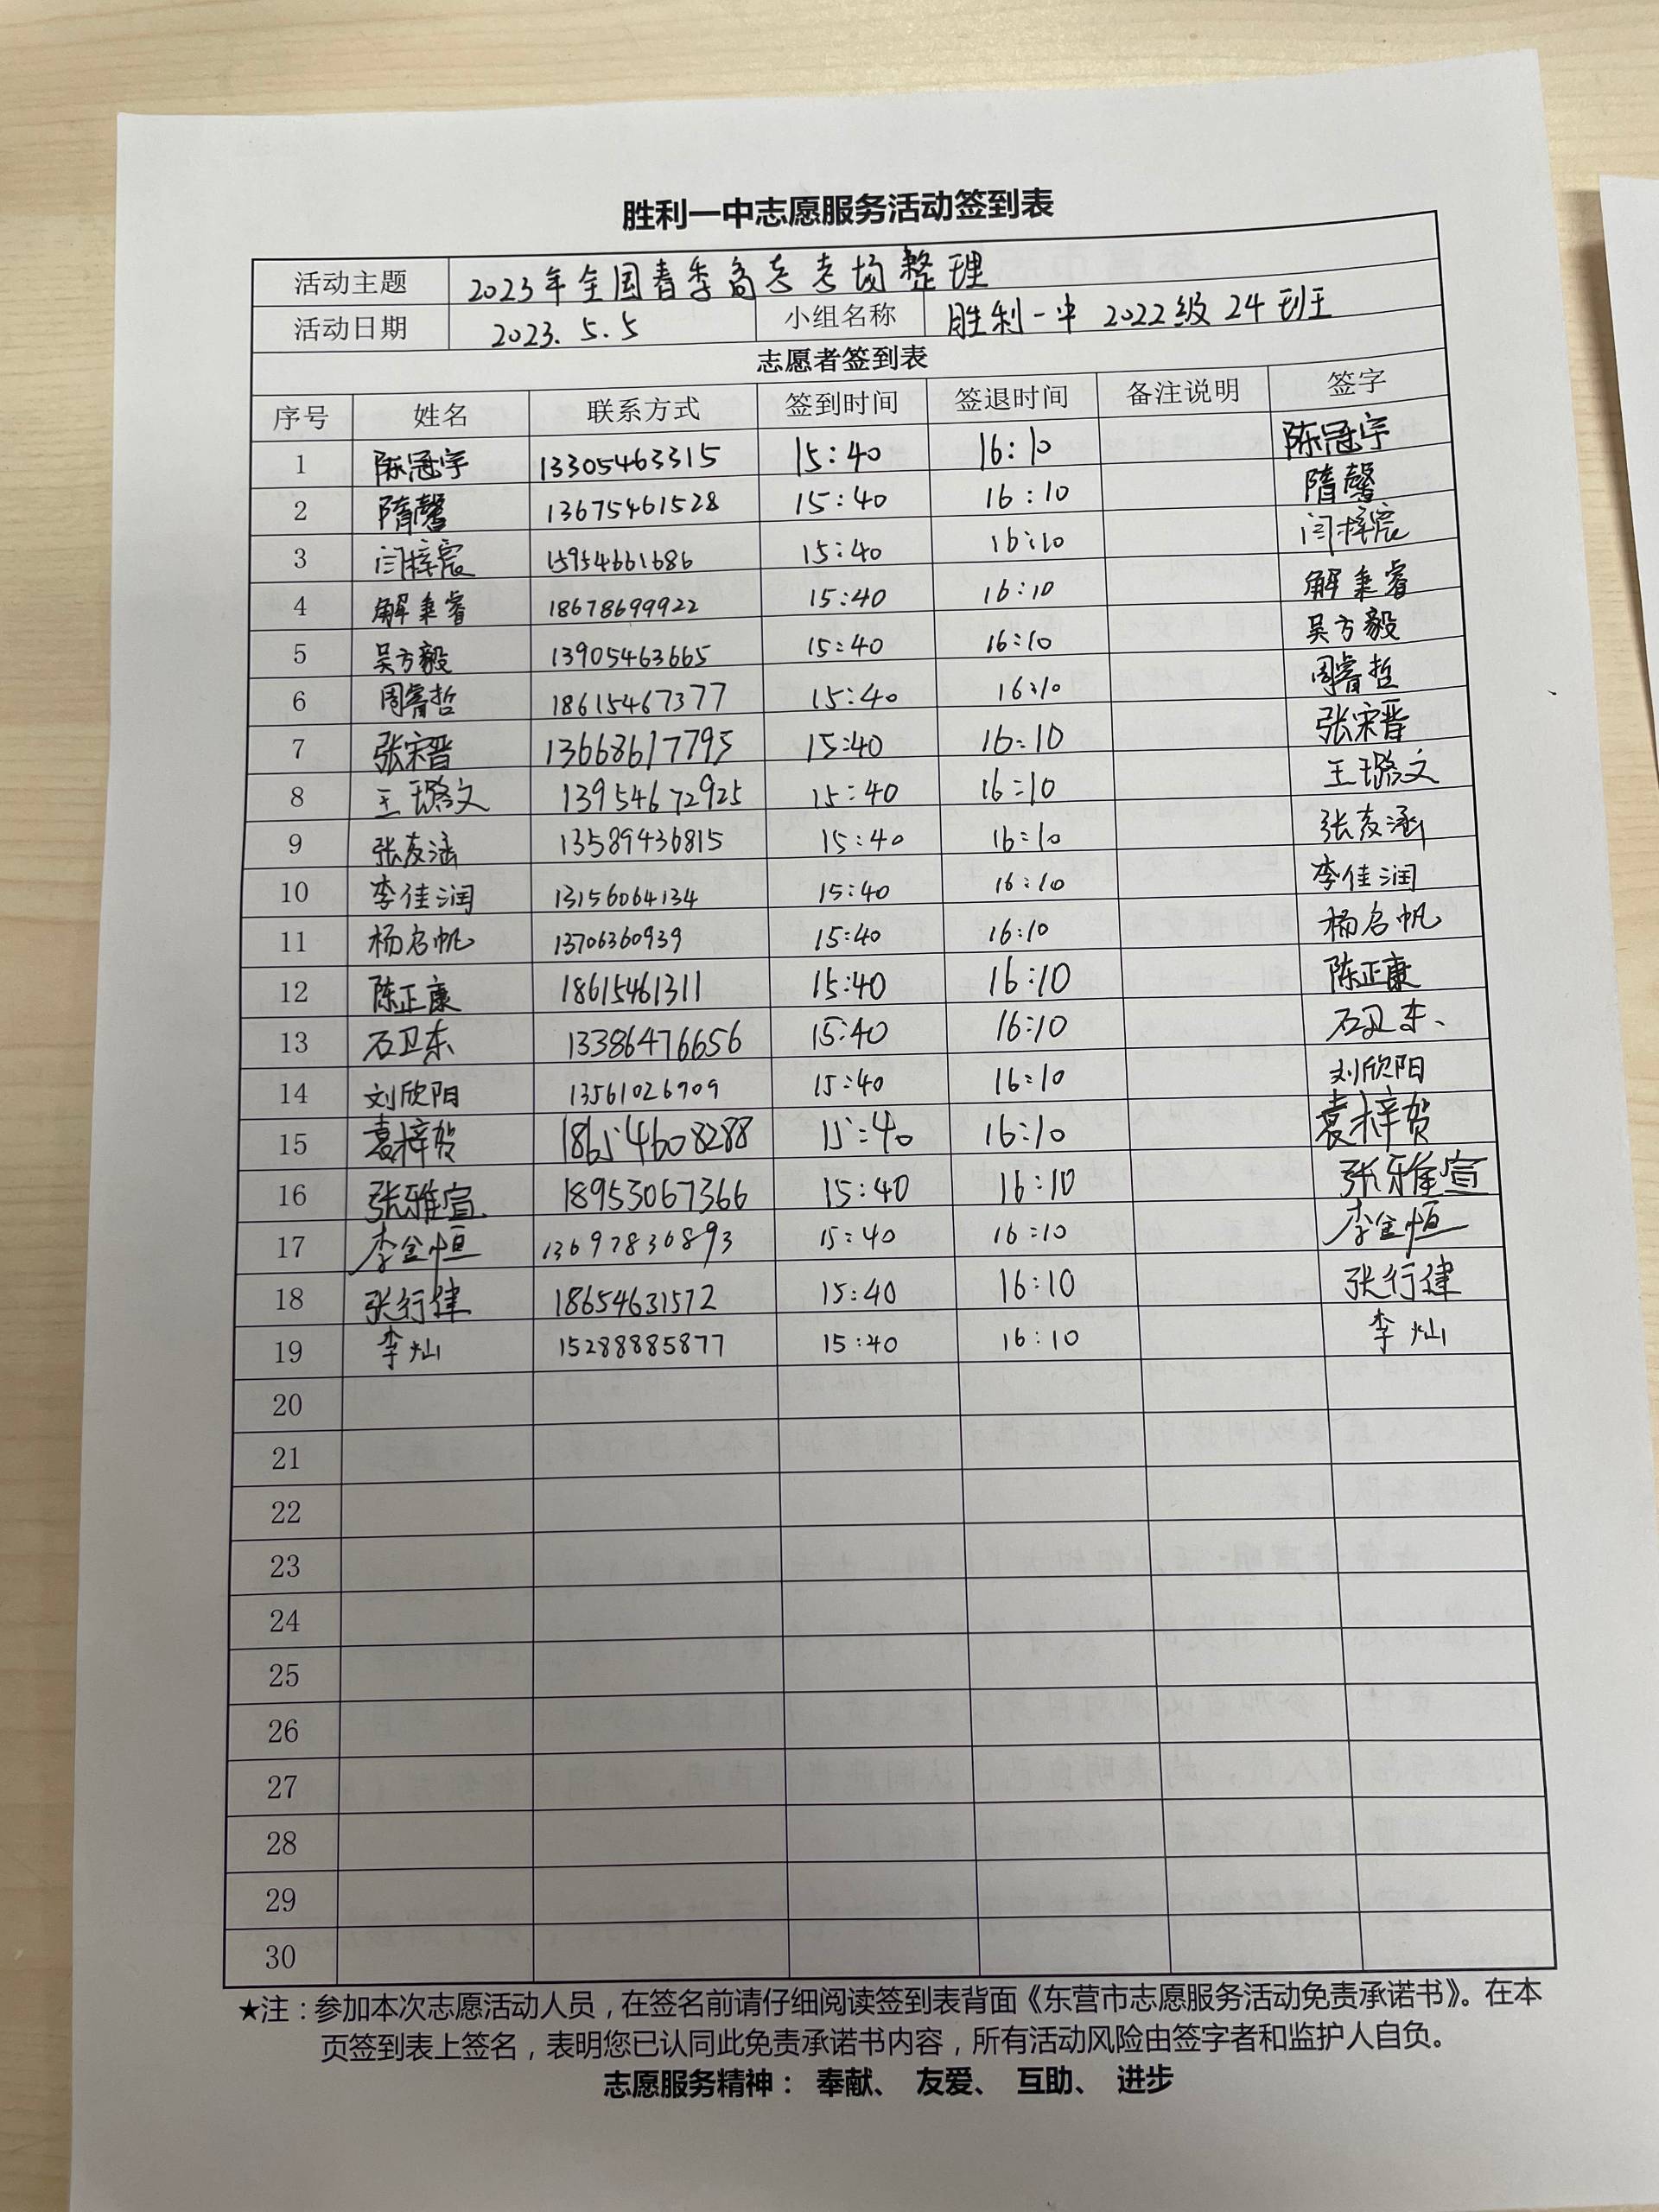 胜利一中志愿服务活动签到表
活动主题 2023年全国春季高考考场整理
活动日期 2023.5.5 小组名称 胜利一中 2022级 24班
志愿者签到表
序号 姓名 联系方式 签到时间 签退时间 备注说明 签字
1 陈冠宇 13305463315 15:40 16:10 陈冠宇
2 隋馨 13675461528 15:40 16:10 隋馨
3 闫梓宸 15954661686 15:40 16:10 闫梓宸
4 解秉睿 18678699922 15:40 16:10 解秉睿
5 吴方毅 13905463665 15:40 16:10 吴方毅
6 周睿哲 18615467377 15:40 16:10 周睿哲
7 张宋晋 13668617795 15:40 16:10 张宋晋
8 王璐文 13954672925 15:40 16:10 王璐文
9 13589436815 15:40 16:10
10 李佳润 13156064134 15:40 16:10 李佳润
11 杨名帆 13706360939 15:40 16:10 杨名帆
12 陈正康 18615461311 15:40 16:10 陈正康
13 石卫东 13386476656 15:40 16:10 石卫东、
14 刘欣阳 13561026909 15:40 16:10 刘欣阳
15 袁梓贺 18654608288 15:40 16:10 袁梓贺
16 张雅宣 18953067366 15:40 16:10 张雅宣
17 李金恒 13697830893 15:40 16:10 李金恒
18 张行健 18654631572 15:40 16:10 张行健
19 李灿 15288885877 15:40 16:10 李灿
20
21
22
23
24
25
26
27
28
29
30
★注：参加本次志愿活动人员，在签名前请仔细阅读签到表背面《东营市志愿服务活动免责承诺书》。在本
页签到表上签名，表明您已认同此免责承诺书内容，所有活动风险由签字者和监护人自负。
志愿服务精神： 奉献、 友爱、 互助、 进步